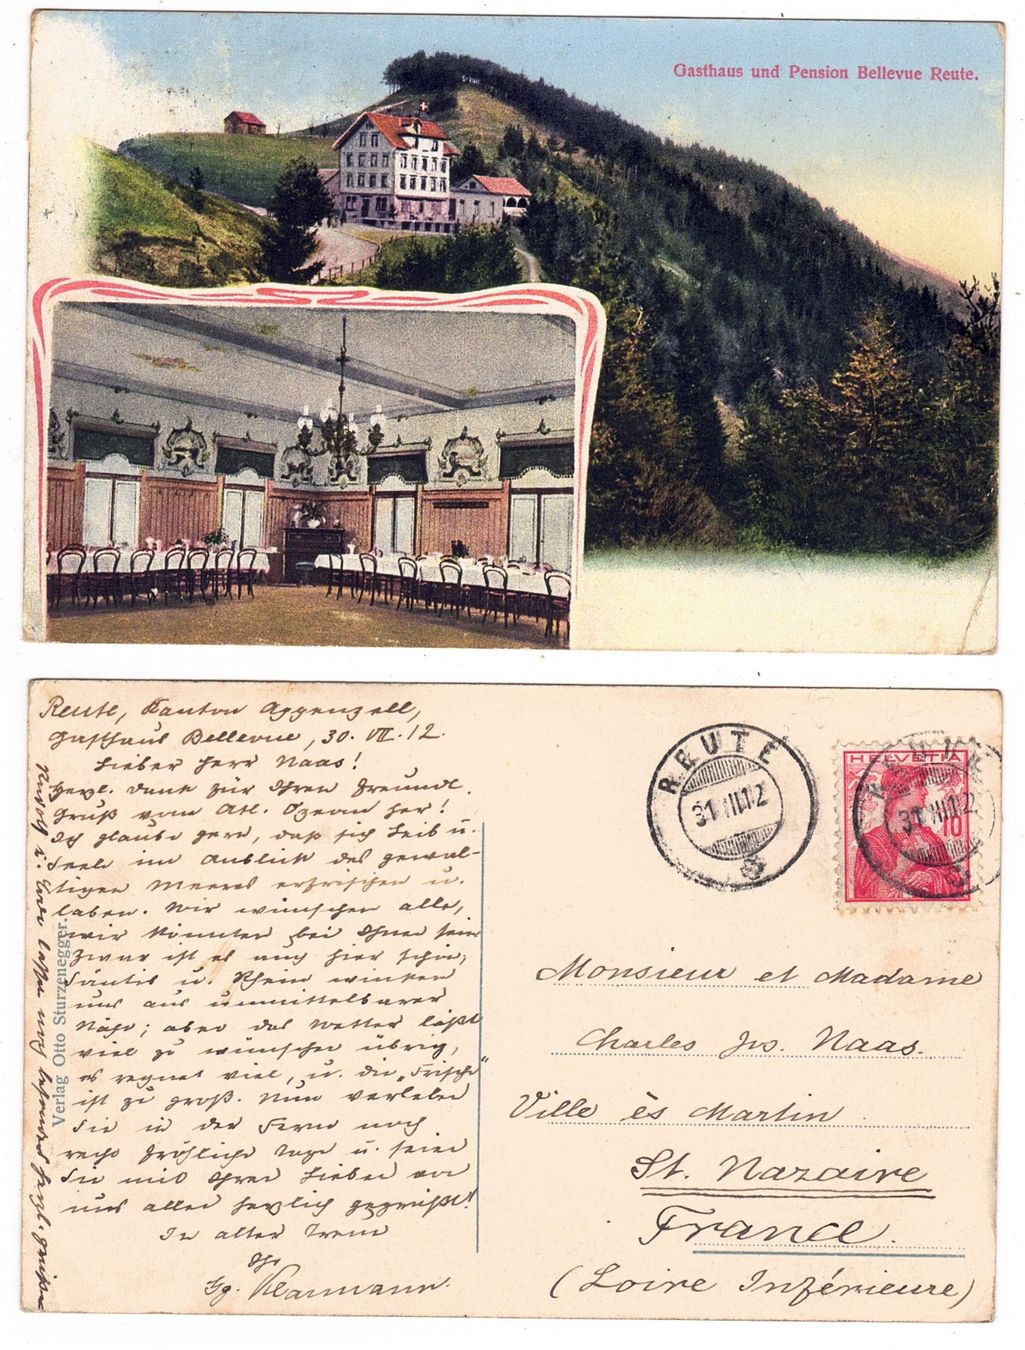 Gasthaus und Pension Bellevue Reute.
Reute, Kanton Appenzell,
Gasthaus Bellevue, 30. VII. 12.
Lieber Herr Naas!
Herzl. Dank für Ihren freundl.
Gruß vom Atl. Ozean her!
Ich glaube gern, daß sich Leib u.
Seele im Anblick des gewal-
tigen Meeres erfrischen u.
laben. Wir wünschen alle,
wir könnten bei Ihnen sein
Zwar ist es auch hier schön,
Säntis u. Rhein winken
uns aus unmittelbarer
Nähe; aber das Wetter läßt
viel zu wünschen übrig,
es regnet viel, u. die „Frische"
ist zu groß. Nun verleben
Sie in der Ferne noch
recht fröhliche Tage u. seien
Sie mit Ihren Lieben von
uns allen herzlich gegrüßt!
In alter Treue
Ihr
Hg.
lassen noch besonders herzl. grüßen
Verlag Otto Sturzenegger.
REUTE
31.VII.12
HELVETIA
10
REUTE
31.VII.12
Monsieur et Madame
Charles Jos. Naas.
Ville ès Martin
St. Nazaire
France.
(Loire Inférieure)